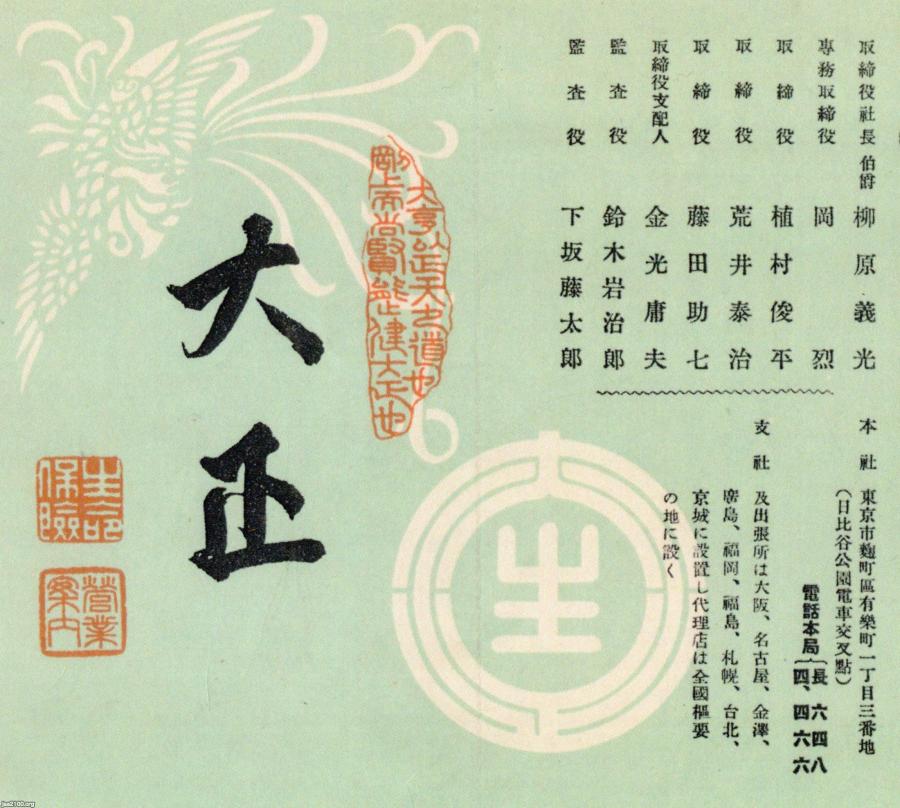 取締役社長 伯爵 柳原義光
専務取締役 岡烈
取締役 植村俊平
取締役 荒井泰治
取締役 藤田助七
取締役支配人 金光庸夫
監査役 鈴木岩治郎
監査役 下坂藤太郎
本社 東京市麴町區有樂町一丁目三番地
(日比谷公園電車交叉點)
電話本局{長 六四八
四、四六六
支社 及出張所は大阪、名古屋、金澤、
廣島、福岡、福島、札幌、台北、
京城に設置し代理店は全國樞要
の地に設く
大亨以正天之道也
剛上而尚賢能止健大正也
生
大正
生命
保險
營業
案内
jaa2100.org